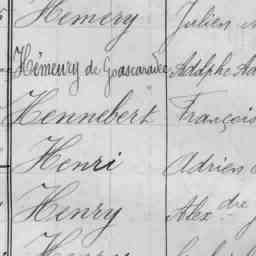 Hémery Julien
Hémeury de Goascaradec Adolphe
Hennebert François
Henri Adrien
Henry Alexdre